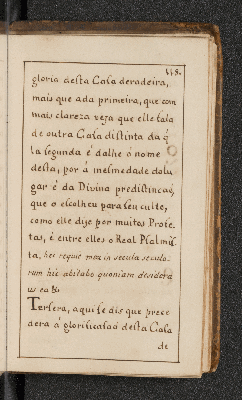 115.
gloria desta Casa deradeira,
mais que ada primeira, que com
mais clareza veja que elle fala
de outra Casa distinta da q̃
la segunda é dalhe ó nome
desta, por á mesmedade do lu
gar é da Divina predistincaç
que o escolheu para seu culto,
como elle dise por muitos Profe
tas, é entre elles o Real Psalmis
ta, hec requie mea in secula seculo
rum hic abitabo quoniam desidera
vi ea &
Tersera, aqui se dis que prece
dera á glorificasaõ desta Casa
de